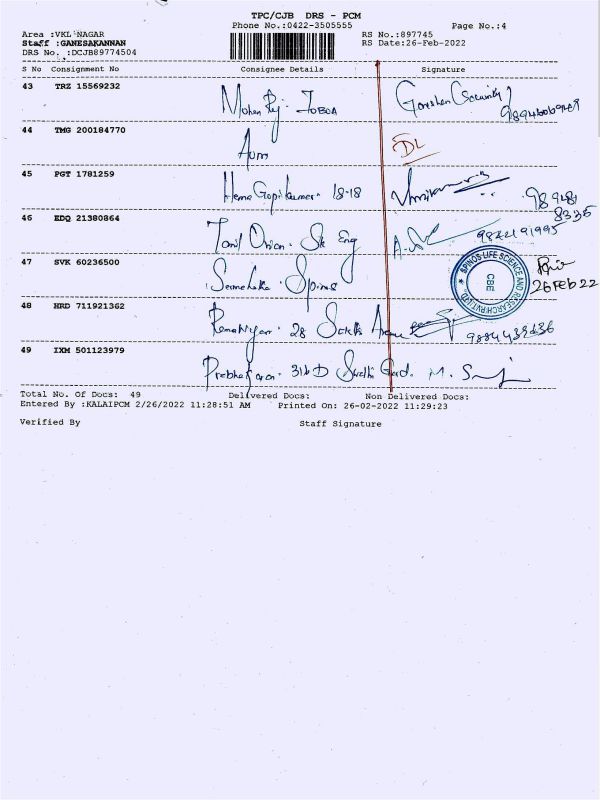 TPC/CJB DRS - PCM
Phone No.:0422-3505555 Page No.:4
Area :VKL NAGAR RS No.:897745
Staff :GANESAKANNAN RS Date:26-Feb-2022
DRS No. :DCJB89774504
S No Consignment No Consignee Details Signature
43 TRZ 15569232 Mohan Raj. (Security)
44 TMG 200184770 DL
45 PGT 1781259 Hema Gopikumar. 18-18
98 9481
8335
46 EDQ 21380864 Eng 9842191995
47 SVK 60236500 Spinos
SPINOS LIFE SCIENCE AND RESEARCH PVT LTD.
CBE
26 Feb 22
48 HRD 711921362 28
49 IXM 501123979 Prabhakaran. 316 D M. S
Total No. Of Docs: 49 Delivered Docs: Non Delivered Docs:
Entered By :KALAIPCM 2/26/2022 11:28:51 AM Printed On: 26-02-2022 11:29:23
Verified By Staff Signature